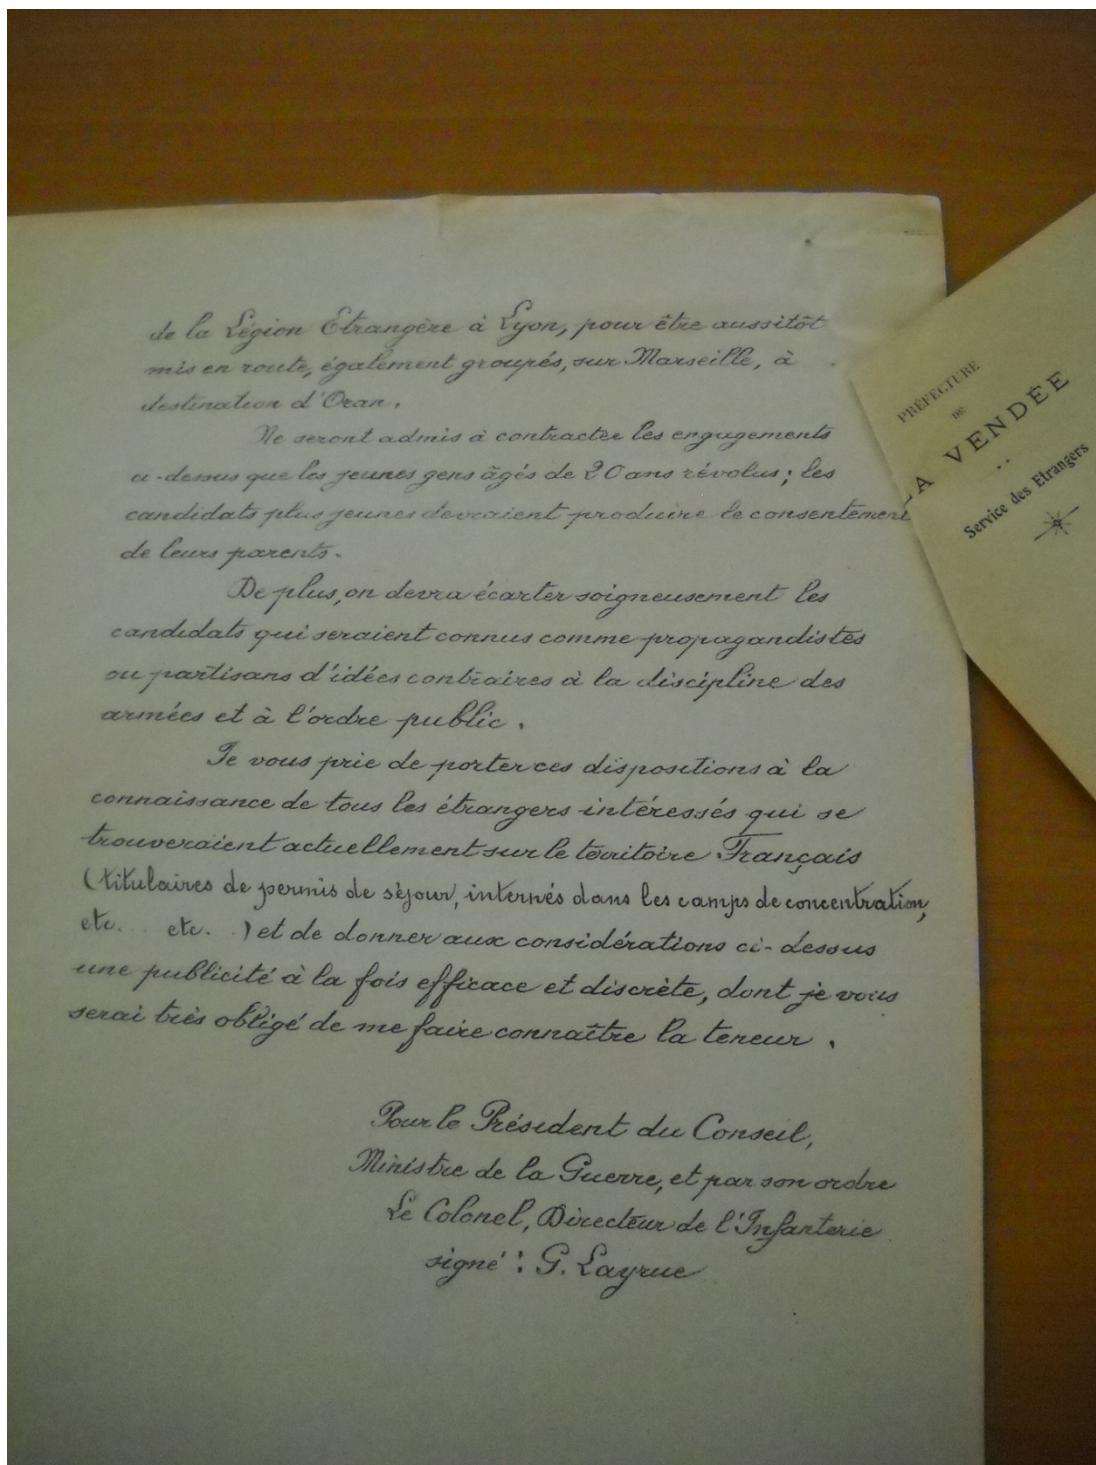 de la Légion Etrangère à Lyon, pour être aussitôt
mis en route, également groupés, sur Marseille, à
destination d'Oran.
Ne seront admis à contracter les engagements
ci-dessus que les jeunes gens âgés de 20 ans révolus; les
candidats plus jeunes devraient produire le consentement
de leurs parents.
De plus, on devra écarter soigneusement les
candidats qui seraient connus comme propagandistes
ou partisans d'idées contraires à la discipline des
armées et à l'ordre public.
Je vous prie de porter ces dispositions à la
connaissance de tous les étrangers intéressés qui se
trouveraient actuellement sur le territoire Français
(titulaires de permis de séjour, internés dans les camps de concentration,
etc. etc. ) et de donner aux considérations ci-dessus
une publicité à la fois efficace et discrète, dont je vous
serai très obligé de me faire connaître la teneur.
Pour le Président du Conseil,
Ministre de la Guerre, et par son ordre
Le Colonel, Directeur de l'Infanterie
signé : G. Layrue
PRÉFECTURE
DE
LA VENDÉE
Service des Etrangers